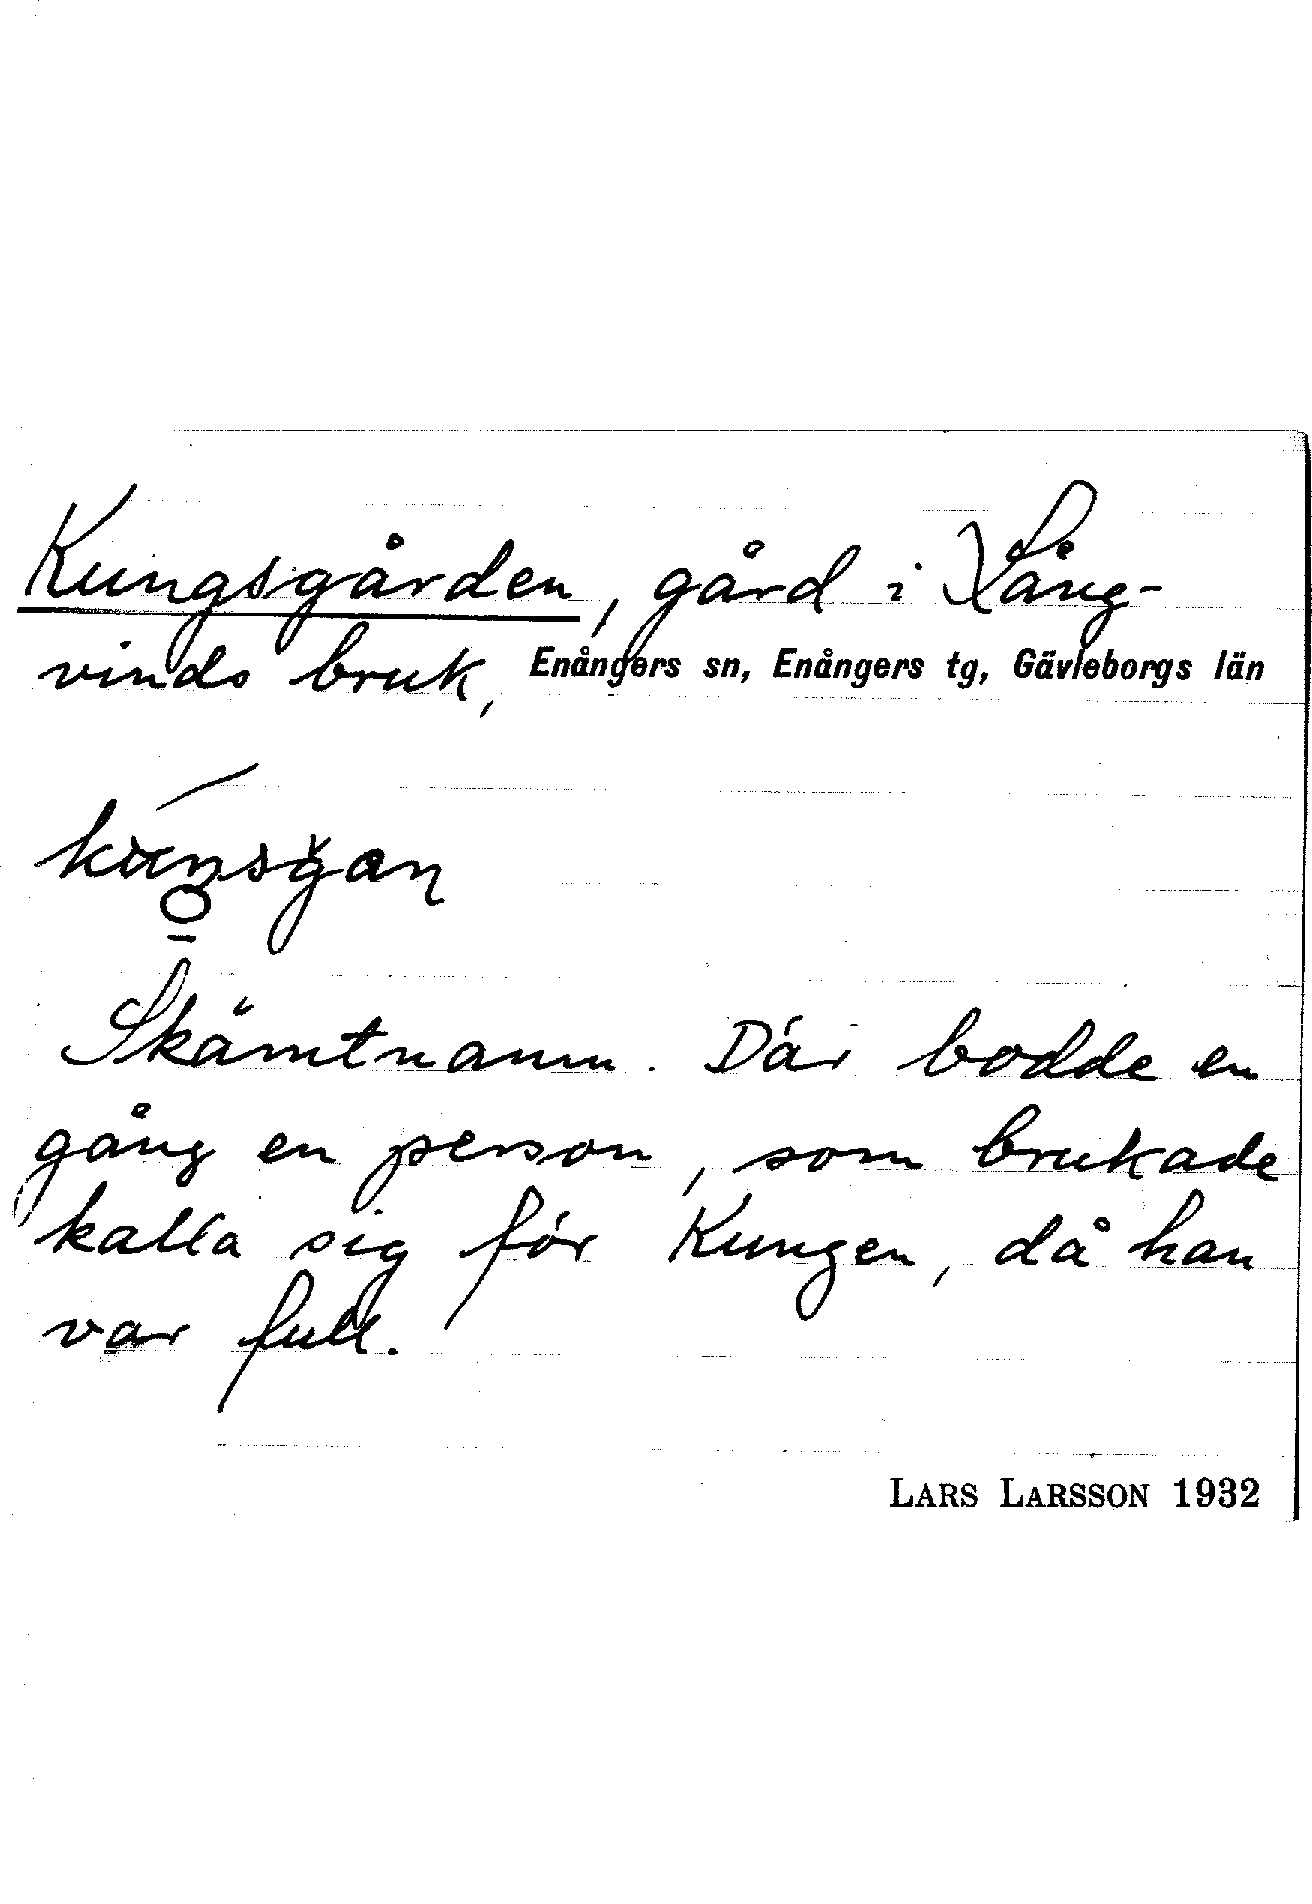 Kungsgården, gård i Lång-
vinds bruk, Enångers sn, Enångers tg, Gävleborgs län
Skämtnamn. Där bodde en
gång en person, som brukade
kalla sig för Kungen, då han
var full.
LARS LARSSON 1932